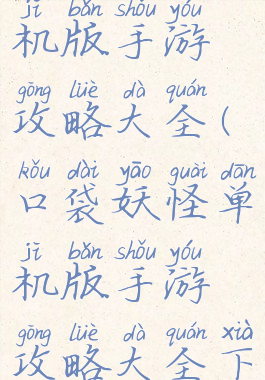 jī bǎn shǒu yóu
机版手游
gōng lüè dà quán
攻略大全(
kǒu dài yāo guài dān
口袋妖怪单
jī bǎn shǒu yóu
机版手游
gōng lüè dà quán xià
攻略大全下